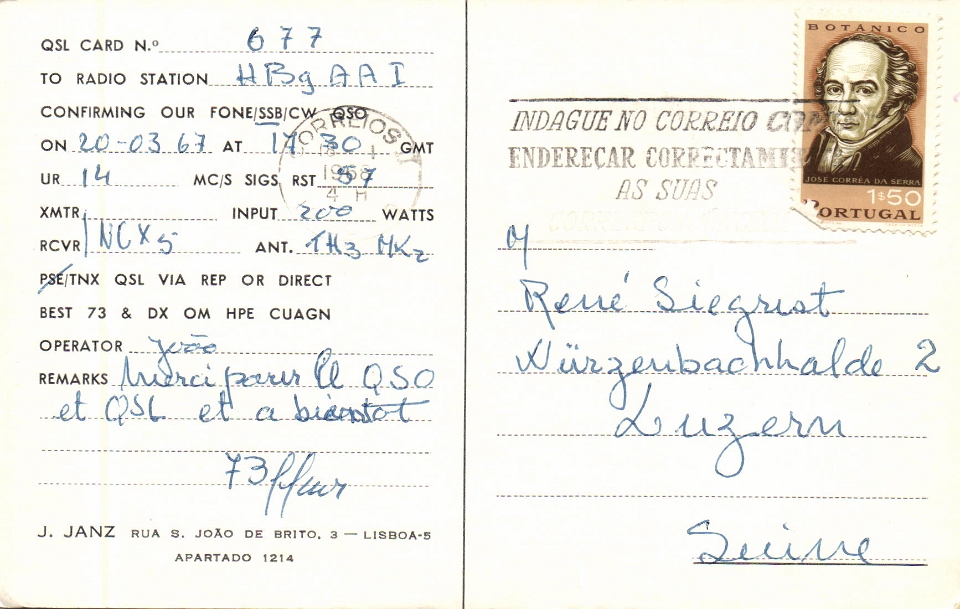 QSL CARD N.º 677
TO RADIO STATION HB9AAI
CONFIRMING OUR FONE/SSB/CW QSO
ON 20-03 67 AT 17 30 GMT
UR 14 MC/S SIGS RST 57
XMTR INPUT 200 WATTS
RCVR NCX5 ANT. TH3 MK2
PSE/TNX QSL VIA REP OR DIRECT
BEST 73 & DX OM HPE CUAGN
OPERATOR João
REMARKS Merci pour le QSO
et QSL et a bientot
73
J. JANZ RUA S. JOÃO DE BRITO, 3 — LISBOA-5
APARTADO 1214
CORREIOS
1968
4 H
BOTÂNICO
JOSÉ CORRÊA DA SERRA
1$50
PORTUGAL
INDAGUE NO CORREIO COMO
ENDEREÇAR CORRECTAMENTE
AS SUAS
René Siegrist
Würzenbachhalde 2
Luzern
Suisse